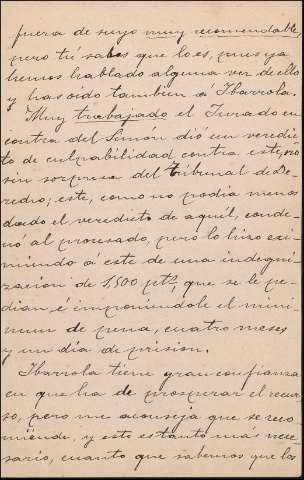 fuera de suyo muy recomendable,
pero tú sabes que lo es, pues ya
hemos hablado alguna vez de ello
y has oido tambien á Ibarrola.
Muy trabajado el Jurado en
contra del Simón dió un veredic
to de culpabilidad contra este, no
sin sorpresa del Tribunal de De-
recho; este, como no podia menos
dado el veredicto de aquél, conde-
nó al procesado, pero lo hizo exi-
miendo á este de una indegni-
zacion de 1,500 ptas, que se le pe-
dian é imponiéndole el mini-
mun de pena, cuatro meses
y un dia de prision.
Ibarrola tiene gran confianza
en que ha de prosperar el recur
so, pero me aconseja que se reco
miende, y esto es tanto más nece-
sario, cuanto que sabemos que los